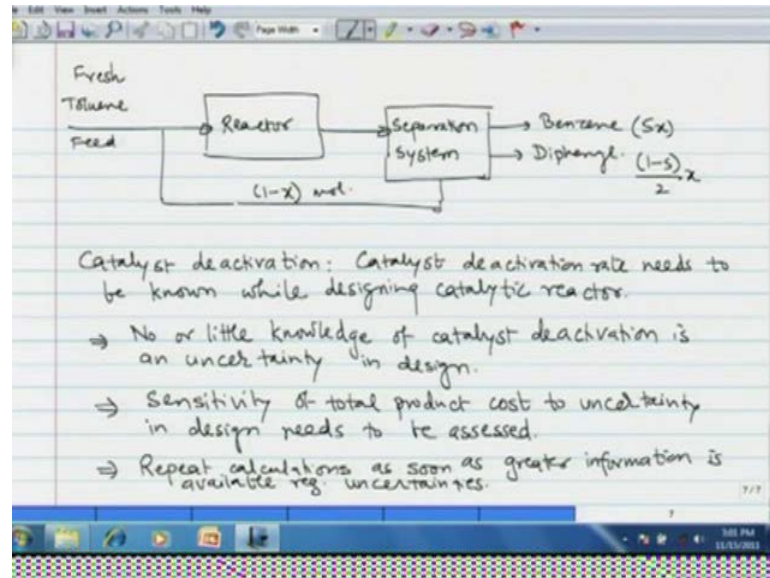 Edit View Insert Actions Tools Help
Page Width
Fresh
Toluene
Feed
Reactor
Separation
System
Benzene (Sx)
Diphenyl. (1-S)/2 x
(1-x) mol.
Catalyst deactivation: Catalyst deactivation rate needs to
be known while designing catalytic reactor.
⇒ No or little knowledge of catalyst deactivation is
an uncertainty in design.
⇒ Sensitivity of total product cost to uncertainty
in design needs to be assessed.
⇒ Repeat calculations as soon as greater information is
available reg. uncertainties.
7/7
7
3:01 PM
11/15/2011